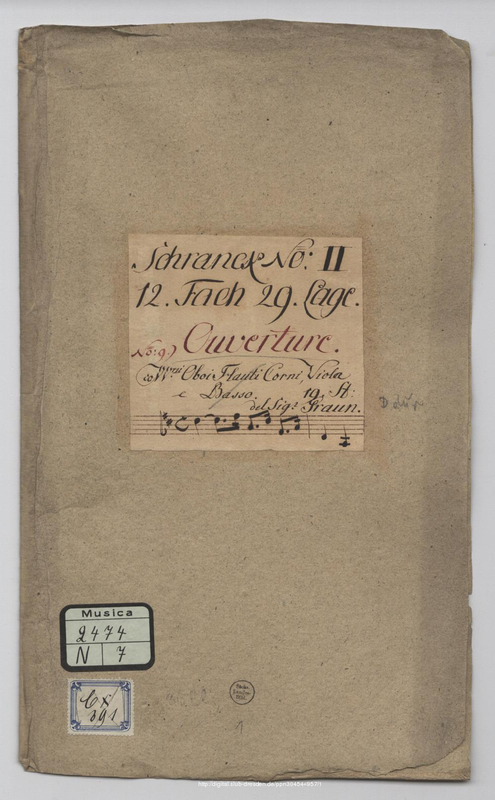 Schranck No: II
12. Fach 29. Lage.
No: 9.) Ouverture.
co VV.ni Oboi Flauti Corni, Viola
e Basso. 19. St:
del Sigr. Graun.
D dur
Musica
2474
N 7
Cx
391
1